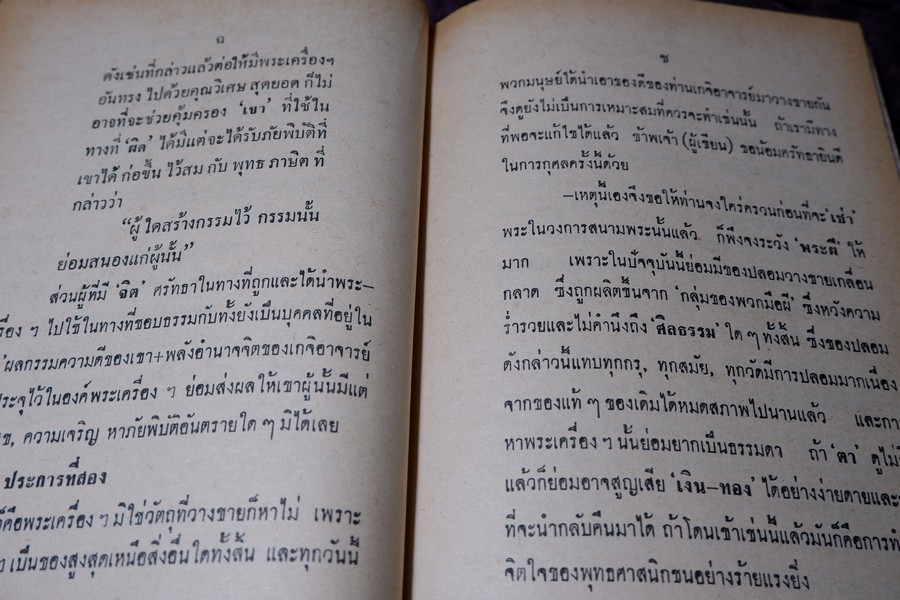 ฉ
ดังเช่นที่กล่าวแล้วต่อให้มีพระเครื่องฯ
อันทรง ไปด้วยคุณวิเศษ สุดยอด ก็ไม่
อาจที่จะช่วยคุ้มครอง ‘เขา’ ที่ใช้ใน
ทางที่ ‘ผิด’ ได้มีแต่จะได้รับภัยพิบัติที่
เขาได้ ก่อขึ้น ไว้สม กับ พุทธ ภาษิต ที่
กล่าวว่า
“ผู้ ใดสร้างกรรมไว้ กรรมนั้น
ย่อมสนองแก่ผู้นั้น”
ส่วนผู้ที่มี ‘จิต’ ศรัทธาในทางที่ถูกและได้นำพระ–
ครื่อง ๆ ไปใช้ในทางที่ชอบธรรมกับทั้งยังเป็นบุคคลที่อยู่ใน
‘ผลกรรมความดีของเขา+พลังอำนาจจิตของเกจิอาจารย์
ประจุไว้ในองค์พระเครื่อง ฯ ย่อมส่งผลให้เขาผู้นั้นมีแต่
ข, ความเจริญ หาภัยพิบัติอันตรายใด ๆ มิได้เลย
ประการที่สอง
ก็คือพระเครื่อง ๆ มิใช่วัตถุที่วางขายก็หาไม่ เพราะ
ๆ เป็นของสูงสุดเหนือสิ่งอื่นใดทั้งสิ้น และทุกวันนี้
ช
พวกมนุษย์ได้นำเอาของดีของท่านเกจิอาจารย์มาวางขายกัน
จึงดูยังไม่เป็นการเหมาะสมที่ควรจะทำเช่นนั้น ถ้าเรามีทาง
ที่พอจะแก้ไขได้แล้ว ข้าพเจ้า (ผู้เขียน) ขอน้อมศรัทธายินดี
ในการกุศลครั้งนี้ด้วย
–เหตุนี้เองจึงขอให้ท่านจงใคร่ครวญก่อนที่จะ ‘เช่า’
พระในวงการสนามพระนั้นแล้ว ก็พึงจงระวัง ‘พระผี’ ให้
มาก เพราะในปัจจุบันนี้ย่อมมีของปลอมวางขายเกลื่อน
กลาด ซึ่งถูกผลิตขึ้นจาก ‘กลุ่มของพวกมือผี’ ซึ่งหวังความ
ร่ำรวยและไม่คำนึงถึง ‘ศิลธรรม’ ใด ๆ ทั้งสิ้น ซึ่งของปลอม
ดังกล่าวนี้แทบทุกกรุ, ทุกสมัย, ทุกวัดมีการปลอมมากเนื่อง
จากของแท้ ๆ ของเดิมได้หมดสภาพไปนานแล้ว และกา
หาพระเครื่อง ฯ นั้นย่อมยากเป็นธรรมดา ถ้า ‘ตา’ ดูไม่
แล้วก็ย่อมอาจสูญเสีย ‘เงิน–ทอง’ ได้อย่างง่ายดายและ
ที่จะนำกลับคืนมาได้ ถ้าโดนเข้าเช่นนี้แล้วมันก็คือการทำ
จิตใจของพุทธศาสนิกชนอย่างร้ายแรงยิ่ง